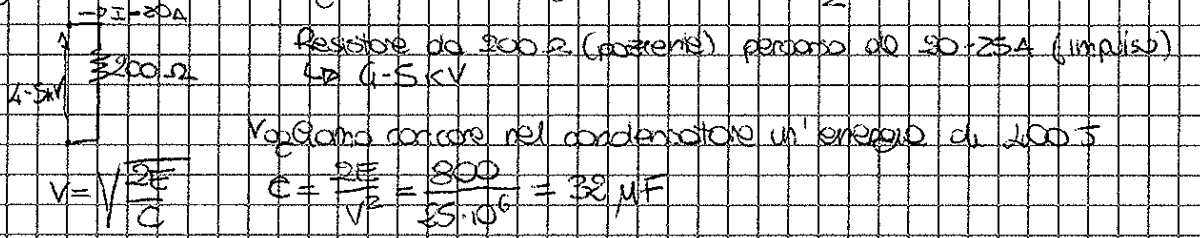 → I=20A
Resistore da 200Ω (paziente) percorso da 20-25A (impulso)
200Ω ↳ 4-5kV
4-5kV
Vogliamo caricare nel condensatore un'energia di 400J
V=√(2E/C) C = 2E/V² = 800/25·10⁶ = 32 μF